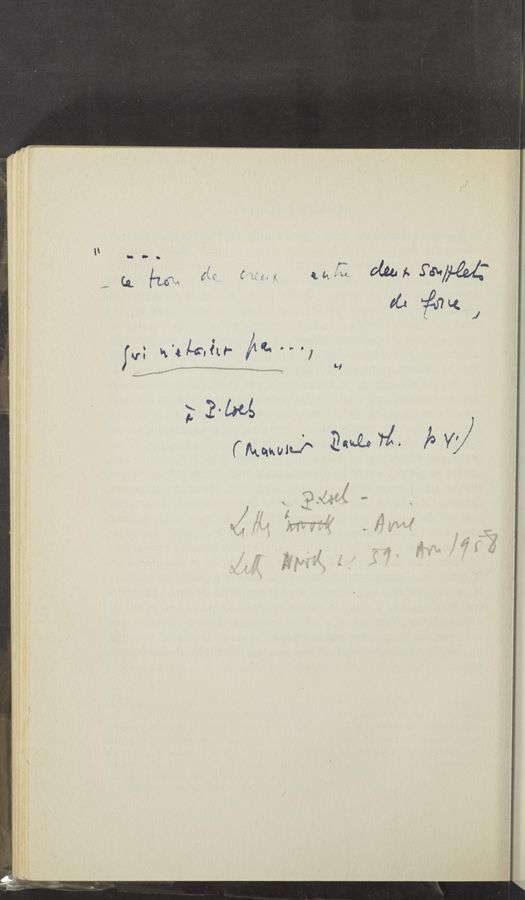 " ---
- ce trou de creux entre deux soufflets
de force,
qui n'étaient pas...,
"
à P. Loeb
(Manuscrit Paule Th. p v.)
à P. Loeb -
Lettre . Avril
Lettr 59. Avr 1958